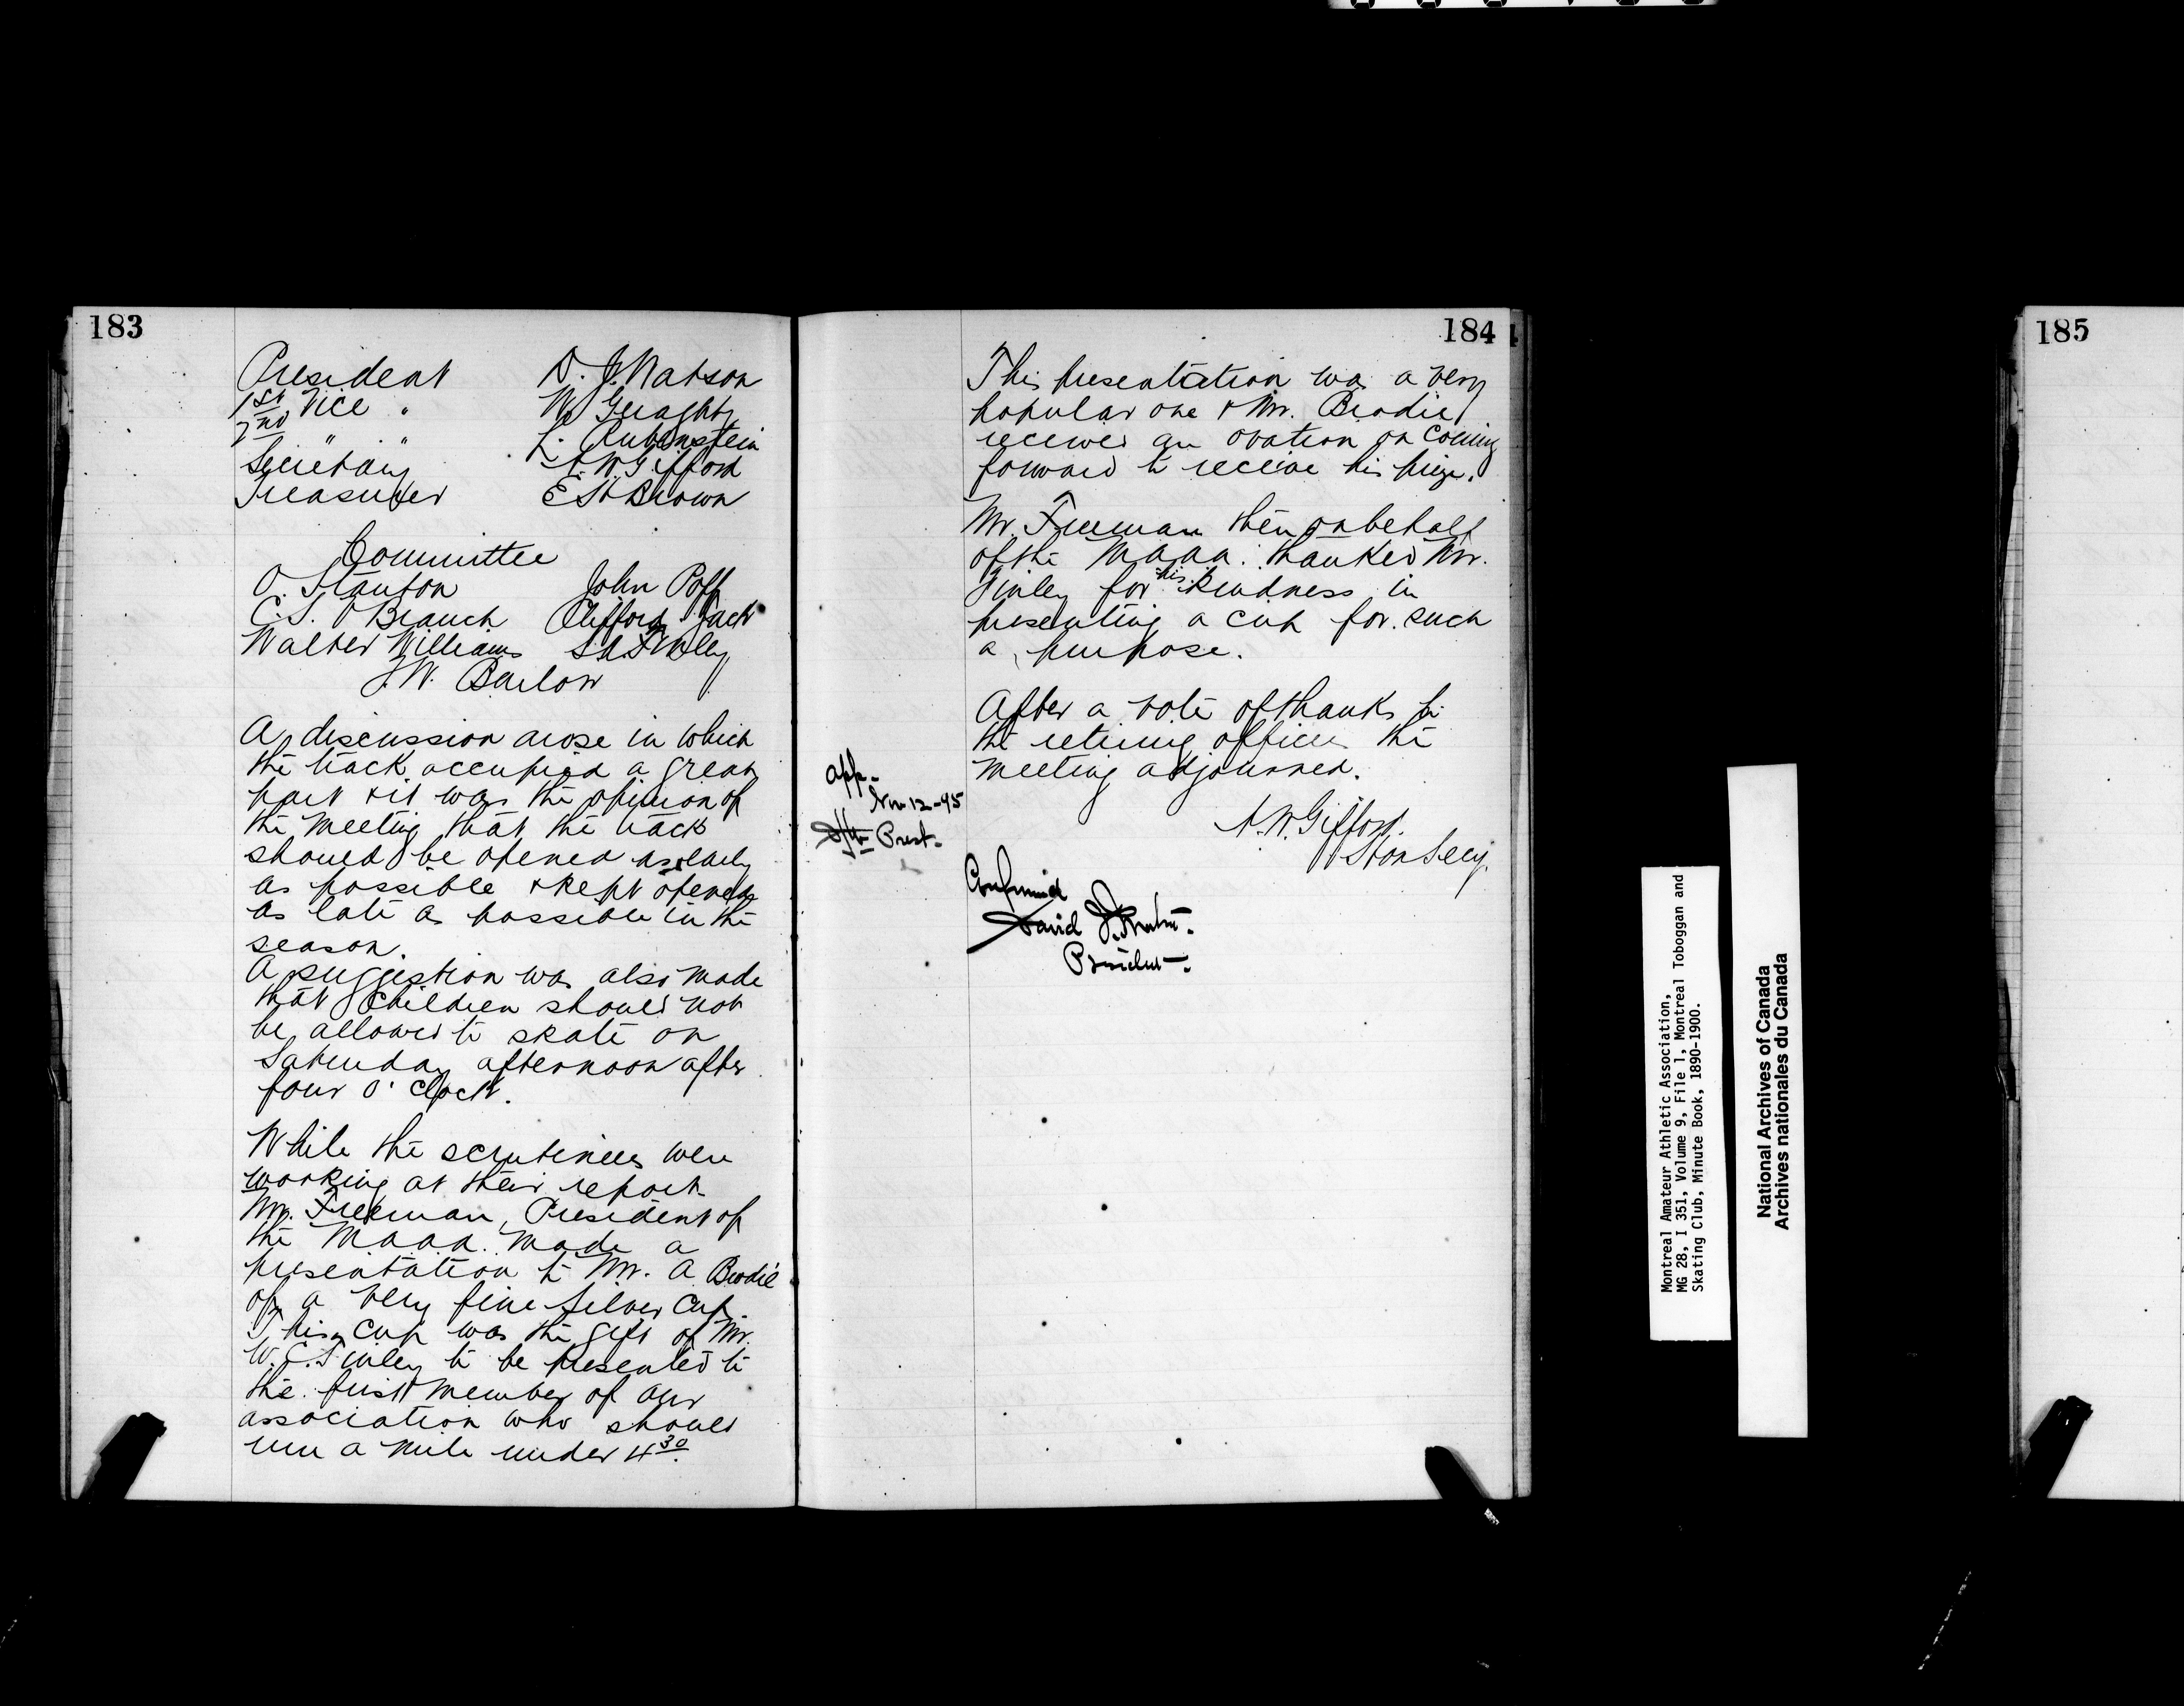 183
President D. J. Watson
1st Vice " W Geraghty
2nd " " L. Rubenstein
Secretary A. W. Gifford
Treasurer E St Brown
Committee
O. Stanton John Poff
C. S. Branch Clifford Jack
Walter Williams S. A. Finley
J. W. Barlow
A discussion arose in which
the track occupied a great
part & it was the opinion of
the meeting that the track
should be opened as early
as possible & kept opened
as late as possible in the
season.
A suggestion was also made
that children should not
be allowed to skate on
Saturday afternoon after
four o'clock.
While the scrutineers were
working at their report
Mr. Freeman, President of
the M.A.A.A. made a
presentation to Mr. A Brodie
of a very fine Silver Cup.
This cup was the gift of Mr.
W. C. Finley to be presented to
the first member of our
association who should
run a mile under 4 30.
184
This presentation was a very
popular one & Mr. Brodie
received an ovation on coming
forward to receive his prize.
Mr. Freeman then on behalf
of the M.A.A.A. thanked Mr.
Finley for his kindness in
presenting a cup for such
a purpose.
After a vote of thanks to
the retiring officers the
meeting adjourned.
A. W. Gifford.
Hon Secy.
App.
Nov 12-95
Prest.
Confirmed
David J. Watson.
President.
185
Montreal Amateur Athletic Association,
MG 28, I 351, Volume 9, File 1, Montreal Toboggan and
Skating Club, Minute Book, 1890-1900.
National Archives of Canada
Archives nationales du Canada